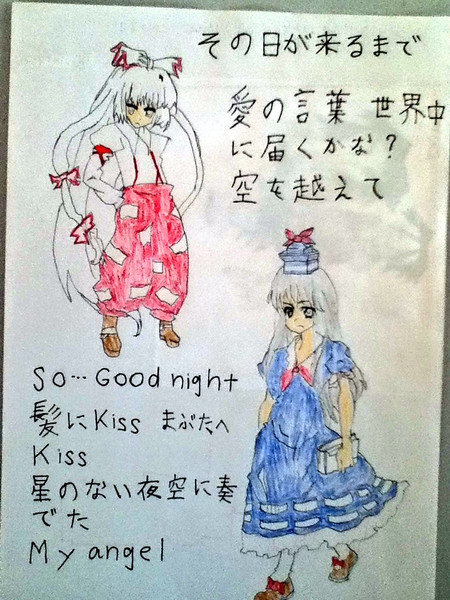 その日が来るまで
愛の言葉 世界中
に届くかな?
空を越えて
So…Good night
髪にKiss まぶたへ
Kiss
星のない夜空に奏
でた
My angel